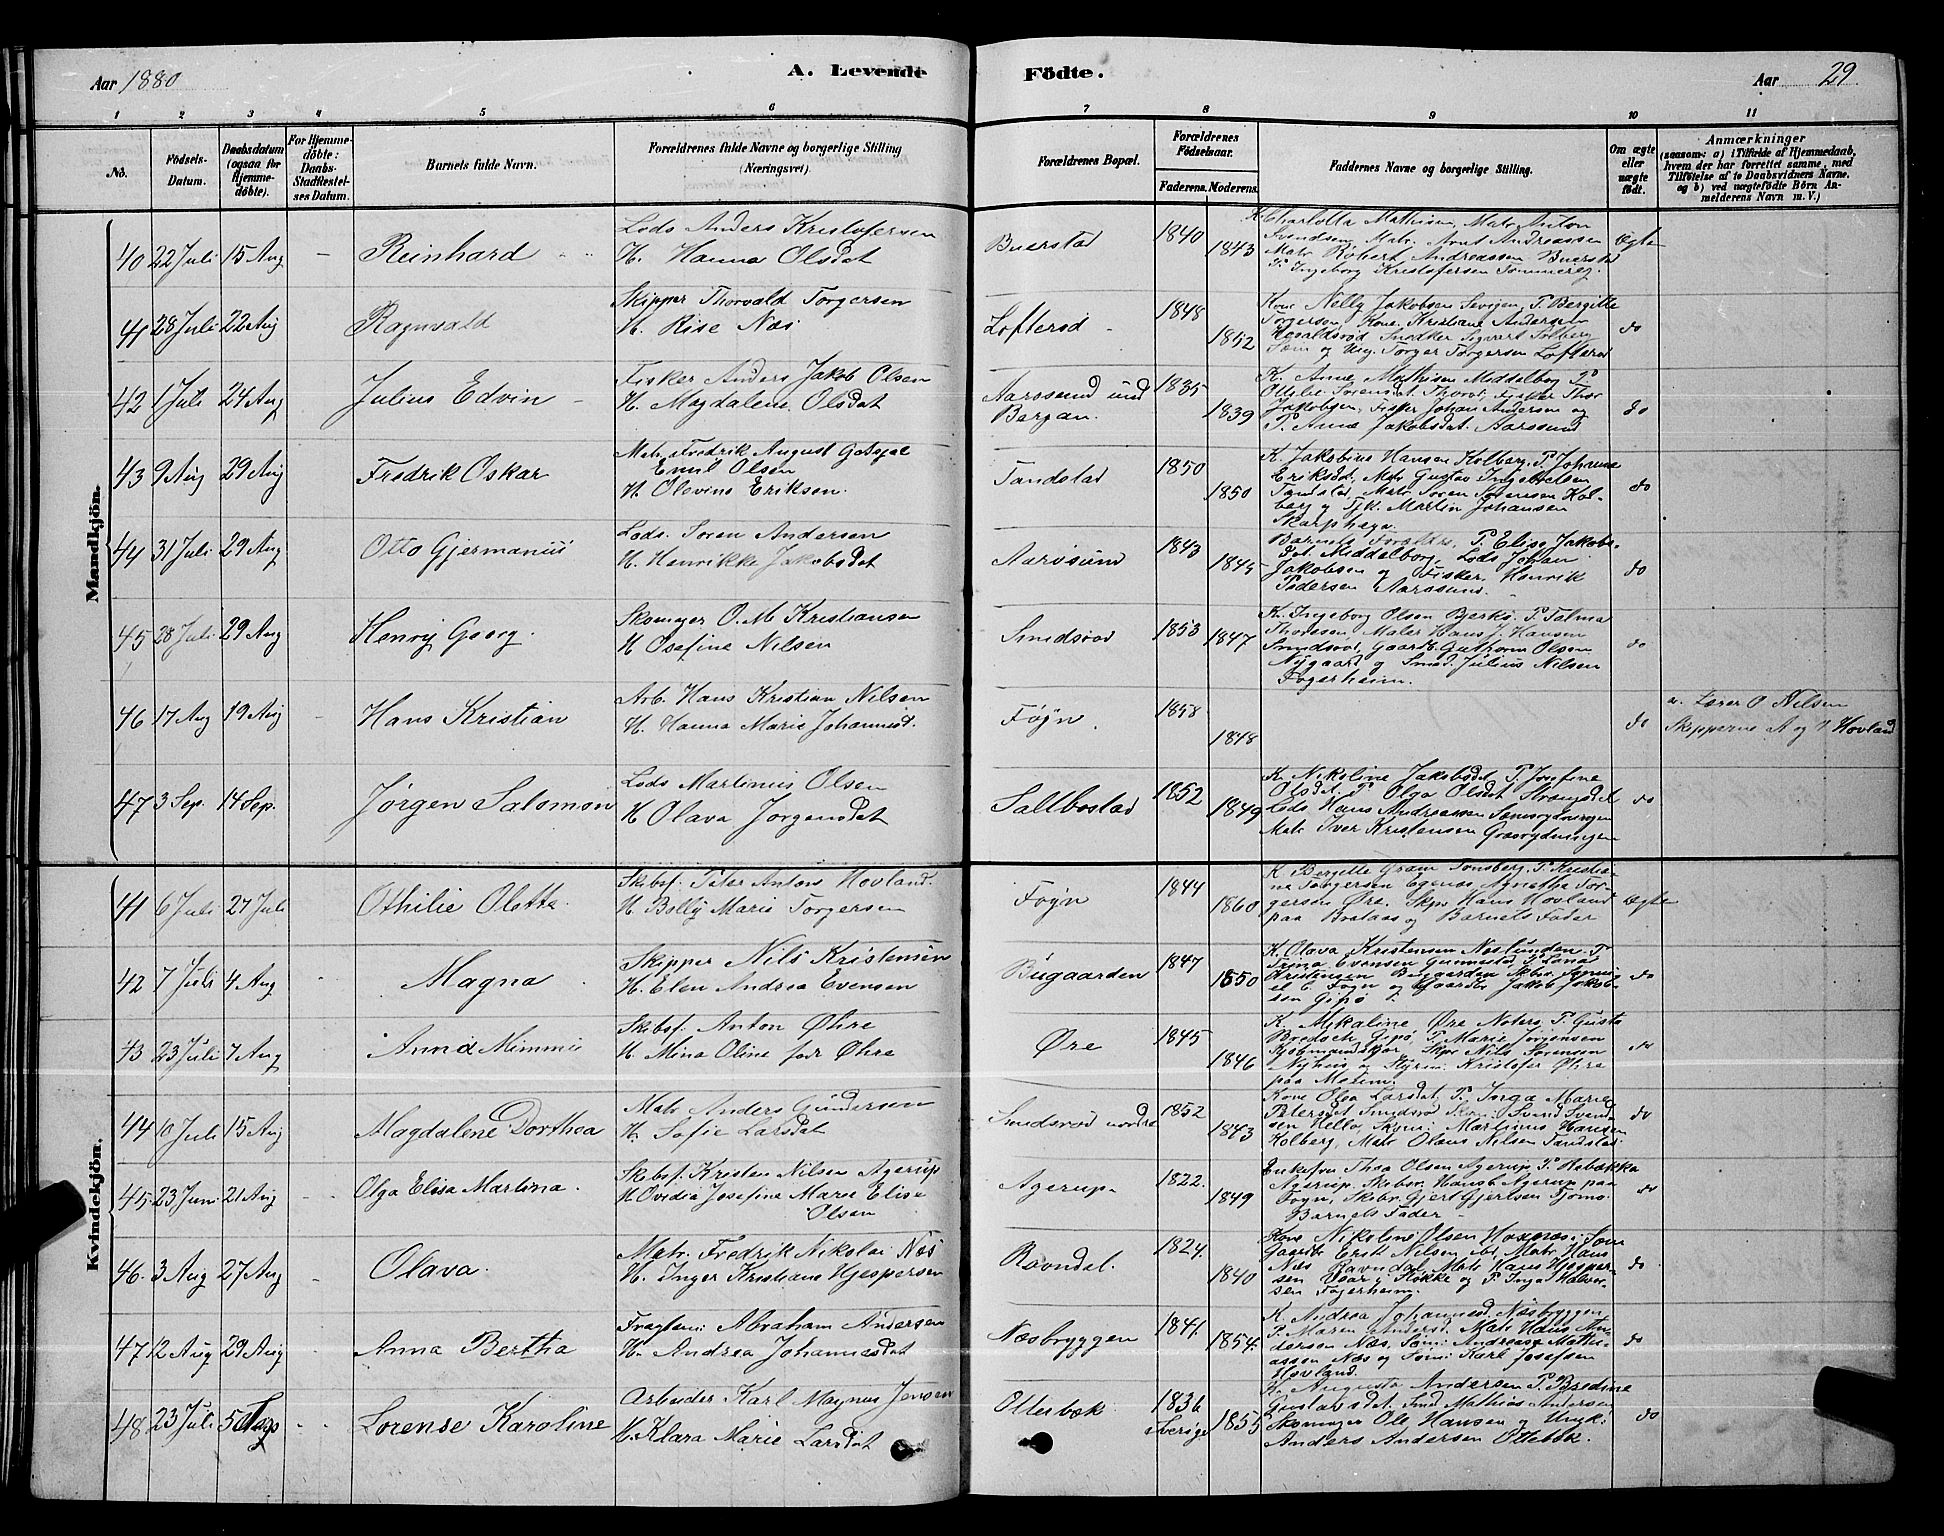 Aar 1880
A. Levende Födte.
Aar 29
1 2 3 4 5 6 7 8 9 10 11
No.
Födsels-Datum.
Daabsdatum (ogsaa for Hjemme-döbte).
For Hjemme-döbte: Daabs-Stadfæstel-ses Datum.
Barnets fulde Navn.
Forældrenes fulde Navne og borgerlige Stilling (Næringsvei).
Forældrenes Bopæl.
Forældrenes Födselsaar.
Faderens. Moderens.
Faddernes Navne og borgerlige Stilling.
Om ægte eller uægte födt.
Anmærkninger
(saasom: a) i Tilfælde af Hjemmedaab, hvem der har forrettet samme, med Tilföielse af to Daabsvidners Navne, og b) ved uægtefödte Börn An-melderens Navn m. V.)
Mandkjön.
40 22 Juli 15 Aug - Reinhard
Lods Anders Kristofersen
H. Hanna Olsdat
Buerstad 1840 1843
K Charlotta Mathisen, Matr Anton
Svendsen, Matr. Arnt Andreassen
Matr Robert Andreassen Buerstad
P. Ingeborg Kristofersen
Ægte
41 28 Juli 22 Aug Ragnvald
Skipper Thorvald Torgersen
H. Rise Næs
Lofterød - 1848 1852
Kone Nilly Jakobsen P. Bergitte
Torgersen, Kone Kristiane Andersen
Sigvart Solberg
Sem og Ung. Torger Torgersen Lofterød
do
42 1 Juli 24 Aug Julius Edvin -
Fisker Anders Jakob Olsen
H. Magdalene Olsdat
Aarøsund und
Bergan. 1835 1839
K. Anne Mathisen Middelborg P
Fisker Thor
Jakobsen, Fisker Johan Andersen og
P. Anne Jakobsdat. Aarøsund
do
43 9 Aug 29 Aug Fredrik Oskar
Matr. Fredrik August
Emil Olsen
H. Olevine Eriksen.
Tandstad 1850 1850
K. Jakobine Hansen Kolberg, P. Johanne
Eriksdat, Matr Gustav Ingebretsen
Tandstad, Matr. Søren Sørensen Kol-
berg og Martin Johansen
Skarphaga.
do
44 31 Juli 29 Aug Otto Gjermanius
Lods. Søren Andersen
H. Henrikke Jakobsdat
Aarøsund 1843 1845
Barnets Forældre, P. Elise Jakobs-
dat. Middelborg, Lods Johan
Jakobsen og Fisker Henrik
Pedersen Aarøsund.
do
45 28 Juli 29 Aug Henry Georg.
Skomager O. M Kristiansen
H Josefine Nilsen
Smidsrød 1853 1847
K. Ingeborg Olsen Bjerkø. P. Talma
Thoresen Maler Hans J. Hansen
Smidsrød, Gaardb. Guthorm Olsen
Nygaard og Smed. Julius Nilsen
Fagerheim.
do
46 17 Aug 19 Aug - Hans Kristian
Arb. Hans Kristian Nilsen
H. Hanna Marie Johannisd.
Føyn. 1858 1848
do
a. Lærer O Nilsen
Skipperne A og Hovland
47 3 Sep. 14 Sep. Jørgen Salomon
Lods Martinius Olsen
H Olava Jørgensdat
Saltbostad 1852 1849
K. Nikoline Jakobsdat P. Josefine
Olsdat. P Olga Olsdat
Lods Hans Andreassen
Matr Iver Kristensen
do
Kvindekjön.
41 6 Juli 27 Juli Othilie Oletta.
Skibsf. Peter Anton Hovland.
H. Bolly Marie Torgersen
Føyn 1844 1860
K Bergitte Gram Tønsberg. P. Kristia-
ne Torgersen Agnetha Tor-
gersen Øre. Skpr Hans Hovland
paa Bralaas og Barnets Fader
Ægte
42 7 Juli 4 Aug - Magna
Skipper Nils Kristensen
H. Elen Andrea Evensen
Bugaarden 1847 1850
K. Olava Kristensen P
Trina Evensen
Kristensen Bugaarden
Føyn og Gaardbr Jakob Jakob-
sen Gipø
do
43 23 Juli 7 Aug Anna Mimmi
Skibsf. Anton Øhre
H Mina Oline født Øhre
Øre 1845 1846
K. Mikaline Øre P. Gusta
Gipø P. Marie Jørgensen
Skpr Nils Sørensen
og Kristofer Øhre
paa
do
44 10 Juli 15 Aug Magdalene Dorthea
Matr Anders Gundersen
H. Sofie Larsdat
Smidsrød nordre 1852 1843
Kone Olea Larsdat, P. Inga Marie
Petersdat Smidsrød Svend Svend-
sen Martinius Hansen
Kolberg, Matr Olaus Nilsen Tandstad
do
45 23 Juni 21 Aug Olga Elisa Martina.
Skibsf. Kristen Nilsen Agerup
H Ovidia Josefine Marie Elise
Olsen
Agerup - 1822. 1849
Enkefru Thea Olsen Agerup P. Rebækka
Agerup. Skibsr. Agerup paa
Føyn, Skibsr. Gjert Gjertsen Tjømø.
Barnets Fader -
do
46. 3 Aug 27 Aug - Olava.
Matr. Fredrik Nikolai Næs
H. Inger Kristiane Hjespersen
Ravndal. 1824. 1840
Kone Nikoline Olsen
Gaardbr Erik Nilsen ibd, Matr Hans
Næs Ravndal Matr Hans Hjesper-
sen og P. Inga Halvor-
sen Fagerheim.
do
47 12 Aug 29 Aug - Anna Bertha
Fragtem: Abraham Andersen
H. Andrea Johannesdat
Næsbryggen 1841. 1854.
K. Andrea Johannesd Næsbryggen
P. Maren Andersd. Matr Hans An-
dersen Næs, Andreas Mathi-
assen Næs og Karl Josefsen
Hovland.
do
48 23 Juli 5 Sep - Lorense Karoline
Arbeider Karl Magnus Jonsen
H. Klara Marie Larsdat
Ottebæk 1836 Sverige 1855
K. Augusta Andersen P. Bredine
Gustavsdat. Smd Mathias Andersen
Skomager Ole Hansen og Ungk:
Anders Andersen Ottebæk.
do